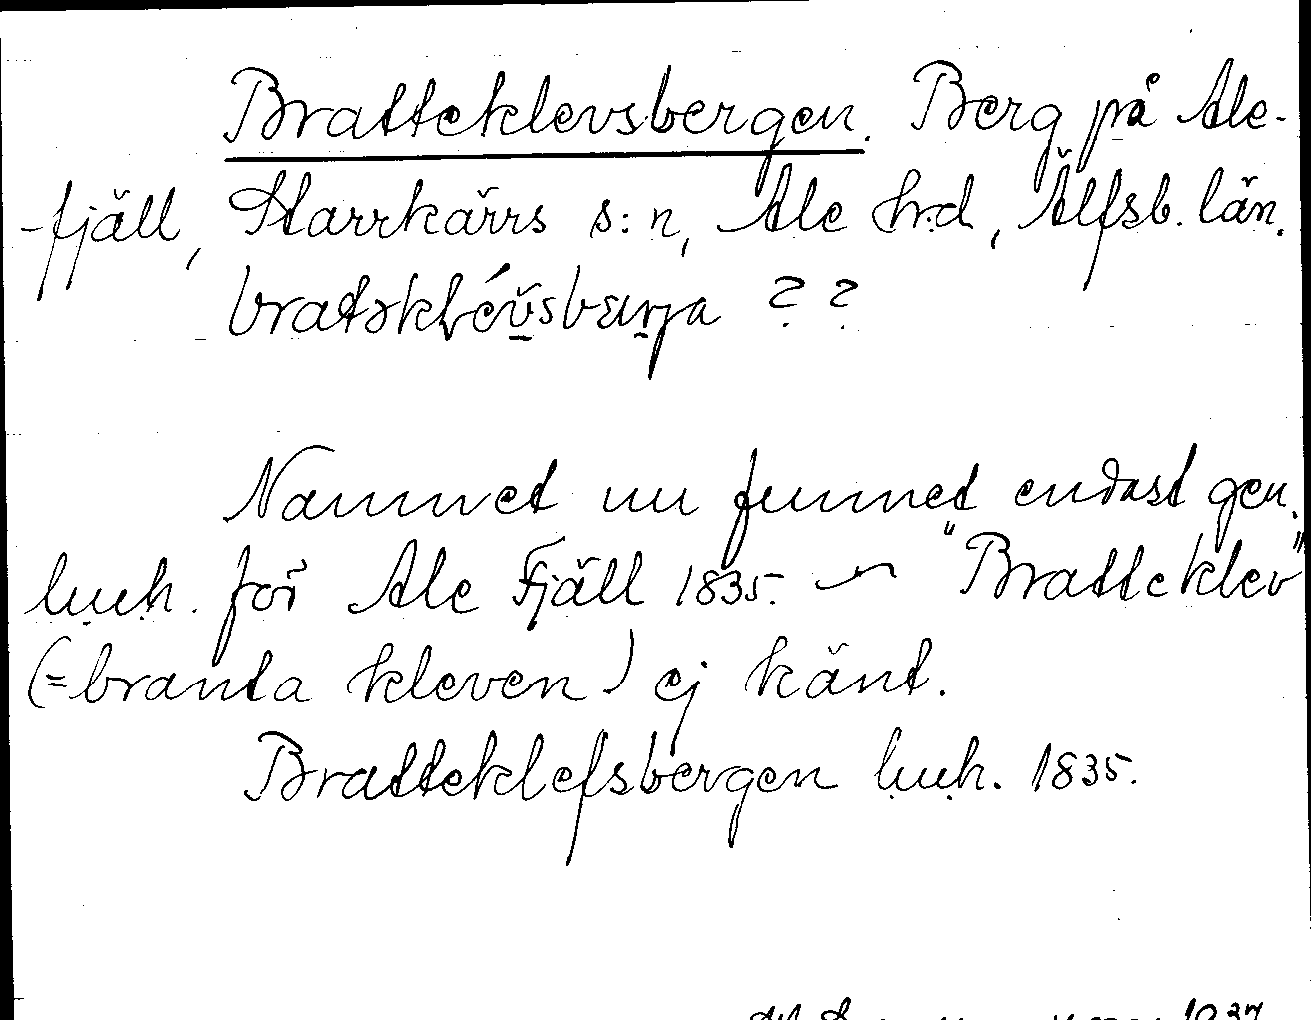 Bratteklevsbergen. Berg på Ale-
-fjäll, Starrkärrs s:n, Ale hrd, Älfsb. län.
??
Namnet nu funnet endast gen.
luuh. för Ale Fjäll 1835. ~ "Bratteklev"
(=branta kleven) ej känt.
Bratteklefsbergen luuh. 1835.
1937